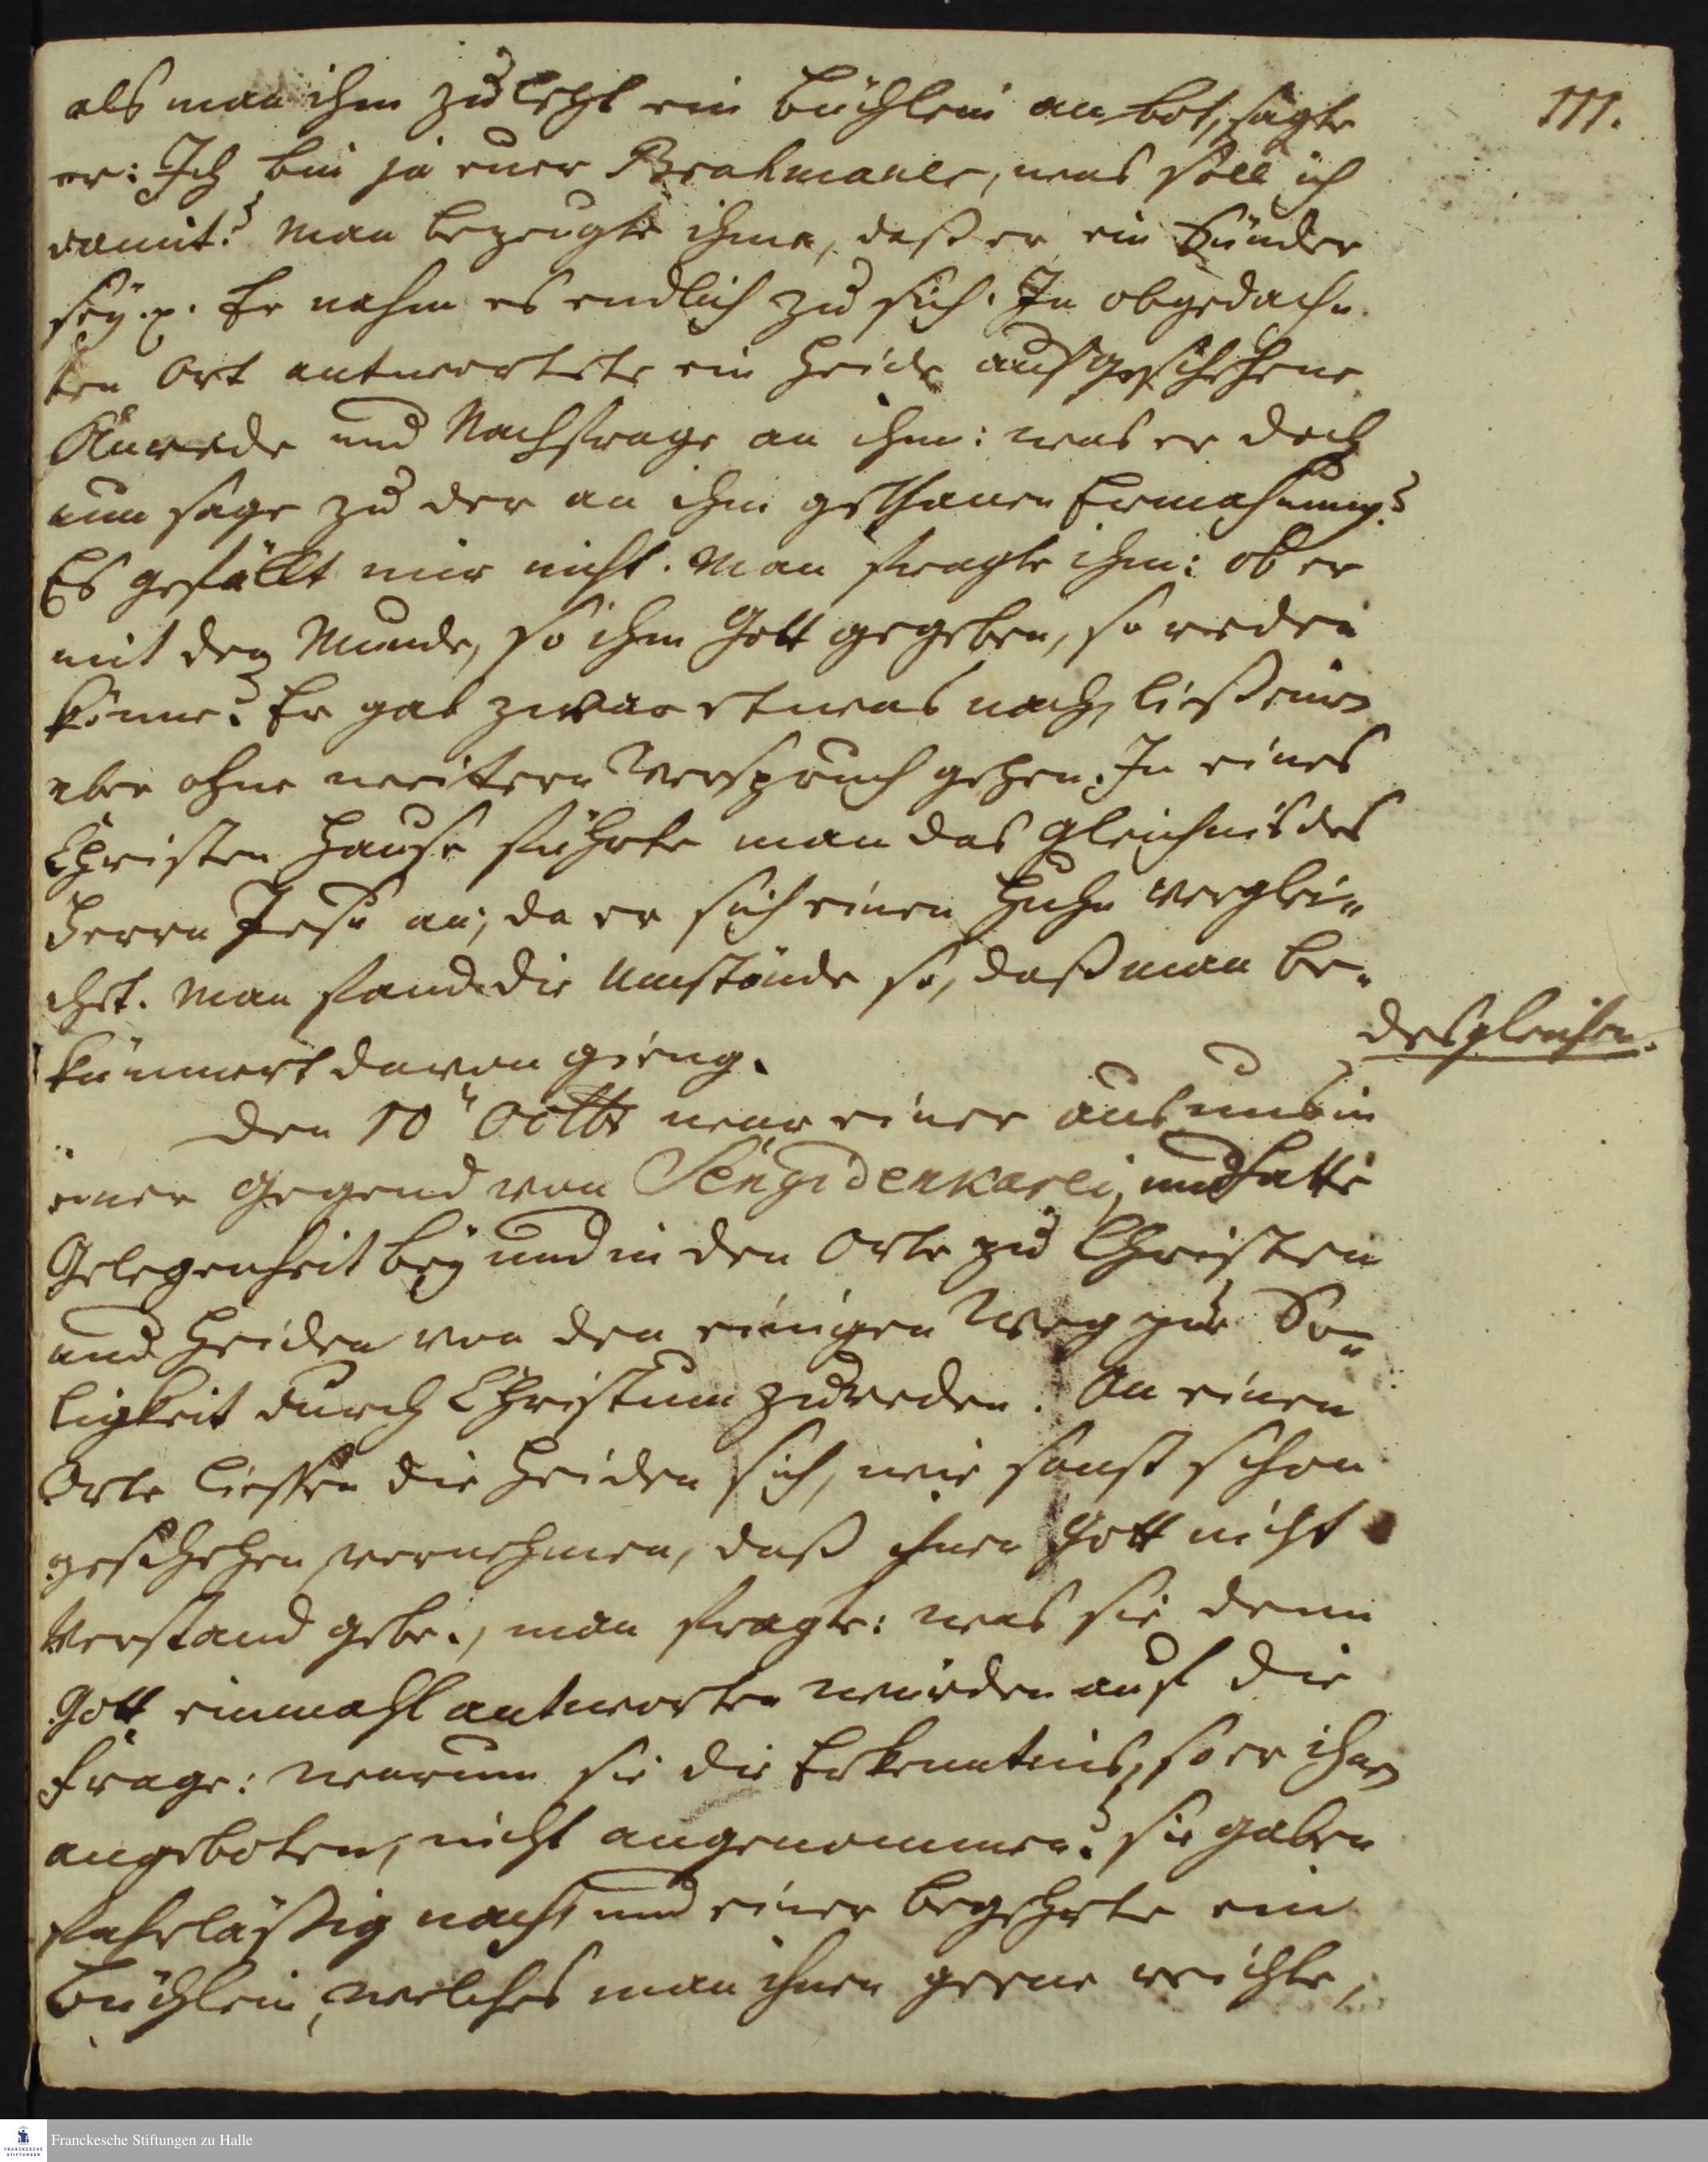 111.
als man ihm zu letzt ein büchlein an bot, sagte
er: Ich bin ja euer Brahmaner, was soll ich
damit? Man bezeugte ihme, daß er ein Sünder
sey. p. Er nahm es endlich zu sich. In obgedach-
ten Ort antwortete ein Heide auf geschehene
Anrede und Nachfrage an ihm: was er doch
nun sage zu der an ihm gethanen Ermahnung?
Es gefällt mir nicht. Man fragte ihm: ob er
mit den Munde, so ihm Gott gegeben, so reden
könne? Er gab zwar etwas nach, ließ einen
aber ohne weitern Verspruch gehen. In eines
Christen Hause führte man das Gleichnis des
Herrn Jesu an, da er sich einen Huhn verglei-
chet. Man fand die Umstände so, daß man be-
kümmert davon gieng.
desgleichen.
Den 10n Octbr war einer aus uns in
einer Gegend von Sengidenkarei, und hatte
Gelegenheit bey und in den Orte zu Christen
und Heiden von den einigen Weg zur See-
ligkeit durch Christum zu reden. An einen
Orte liessen die Heiden sich, wie sonst schon
geschehen, vernehmen, daß ihnen Gott nicht
Verstand gebe., man fragte: was sie denn
Gott einmahl antworten würden auf die
Frage: warum sie die Erkenntnis, so er ihnen
angeboten, nicht angenommen? sie gaben
fahrläßig nach, und einer begehrte ein
Büchlein, welches man ihnen gerne reichte,
Franckesche Stiftungen zu Halle
FRANCKESCHE
STIFTUNGEN